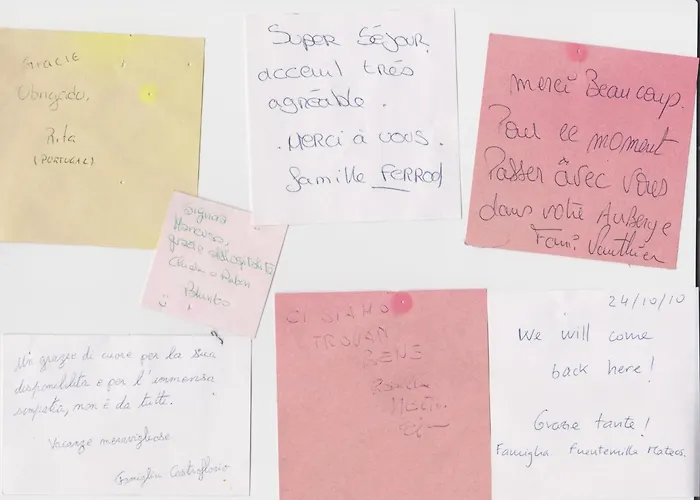 Gracie
Obrigado,
Rita
(PORTUGAL)
SUPER SÉJOUR,
acceuil très
agréable.
. MERCI à VOUS.
famille FERROD
merci Beaucoup.
Pour ce moment
Passer avec vous
dans votre Auberge
Fam. Vauthier
Signora
grazie dell'ospitalità
CI SIAMO
TROVATI
BENE
Un grazie di cuore per la sua
disponibilità e per l'immensa
simpatia, non è da tutti.
Vacanze meravigliose
Famiglia Castroflorio
24/10/10
We will come
back here!
Grazie tante!
Famiglia Fuentemilla Mateos.